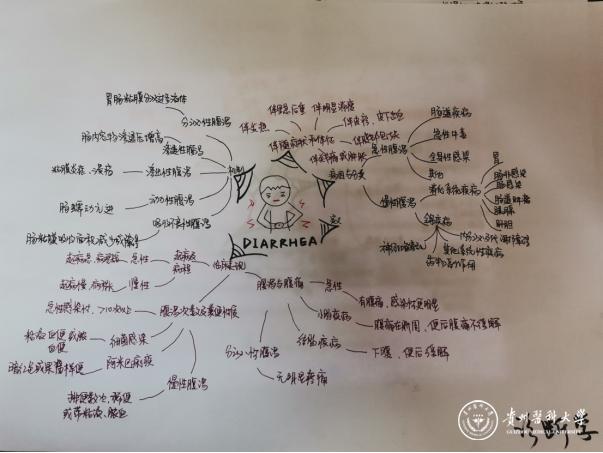 胃肠粘膜分泌过多液体
分泌性腹泻
肠内容物渗透压增高
渗透性腹泻
粘膜炎症、溃疡
渗出性腹泻
肠蠕动亢进
动力性腹泻
吸收不良性腹泻
肠粘膜吸收面积减少或障碍
机制
伴里急后重
伴明显消瘦
伴发热
伴皮疹、皮下出血
伴随症状和体征
伴腹部包块
病因与分类
急性腹泻
肠道疾病
急性中毒
全身性感染
其他
慢性腹泻
消化系统疾病
胃
肠道肿瘤
胰腺
肝胆
全身疾病
内分泌及代谢障碍
系统性疾病
药物副作用
定义
DIARRHEA
临床表现
起病及病程
急性
慢性
腹泻次数及粪便性质
急性感染性、>10次以上
细菌感染
粘液血便或脓血便
阿米巴痢疾
暗红色或果酱样便
慢性腹泻
腹泻与腹痛
急性
有腹痛、感染性更明显
小肠疾病
腹痛在脐周、便后腹痛不缓解
结肠疾病
下腹、便后缓解
分泌性腹泻
无明显疼痛
贵州医科大学
GUIZHOU MEDICAL UNIVERSITY
诊断学